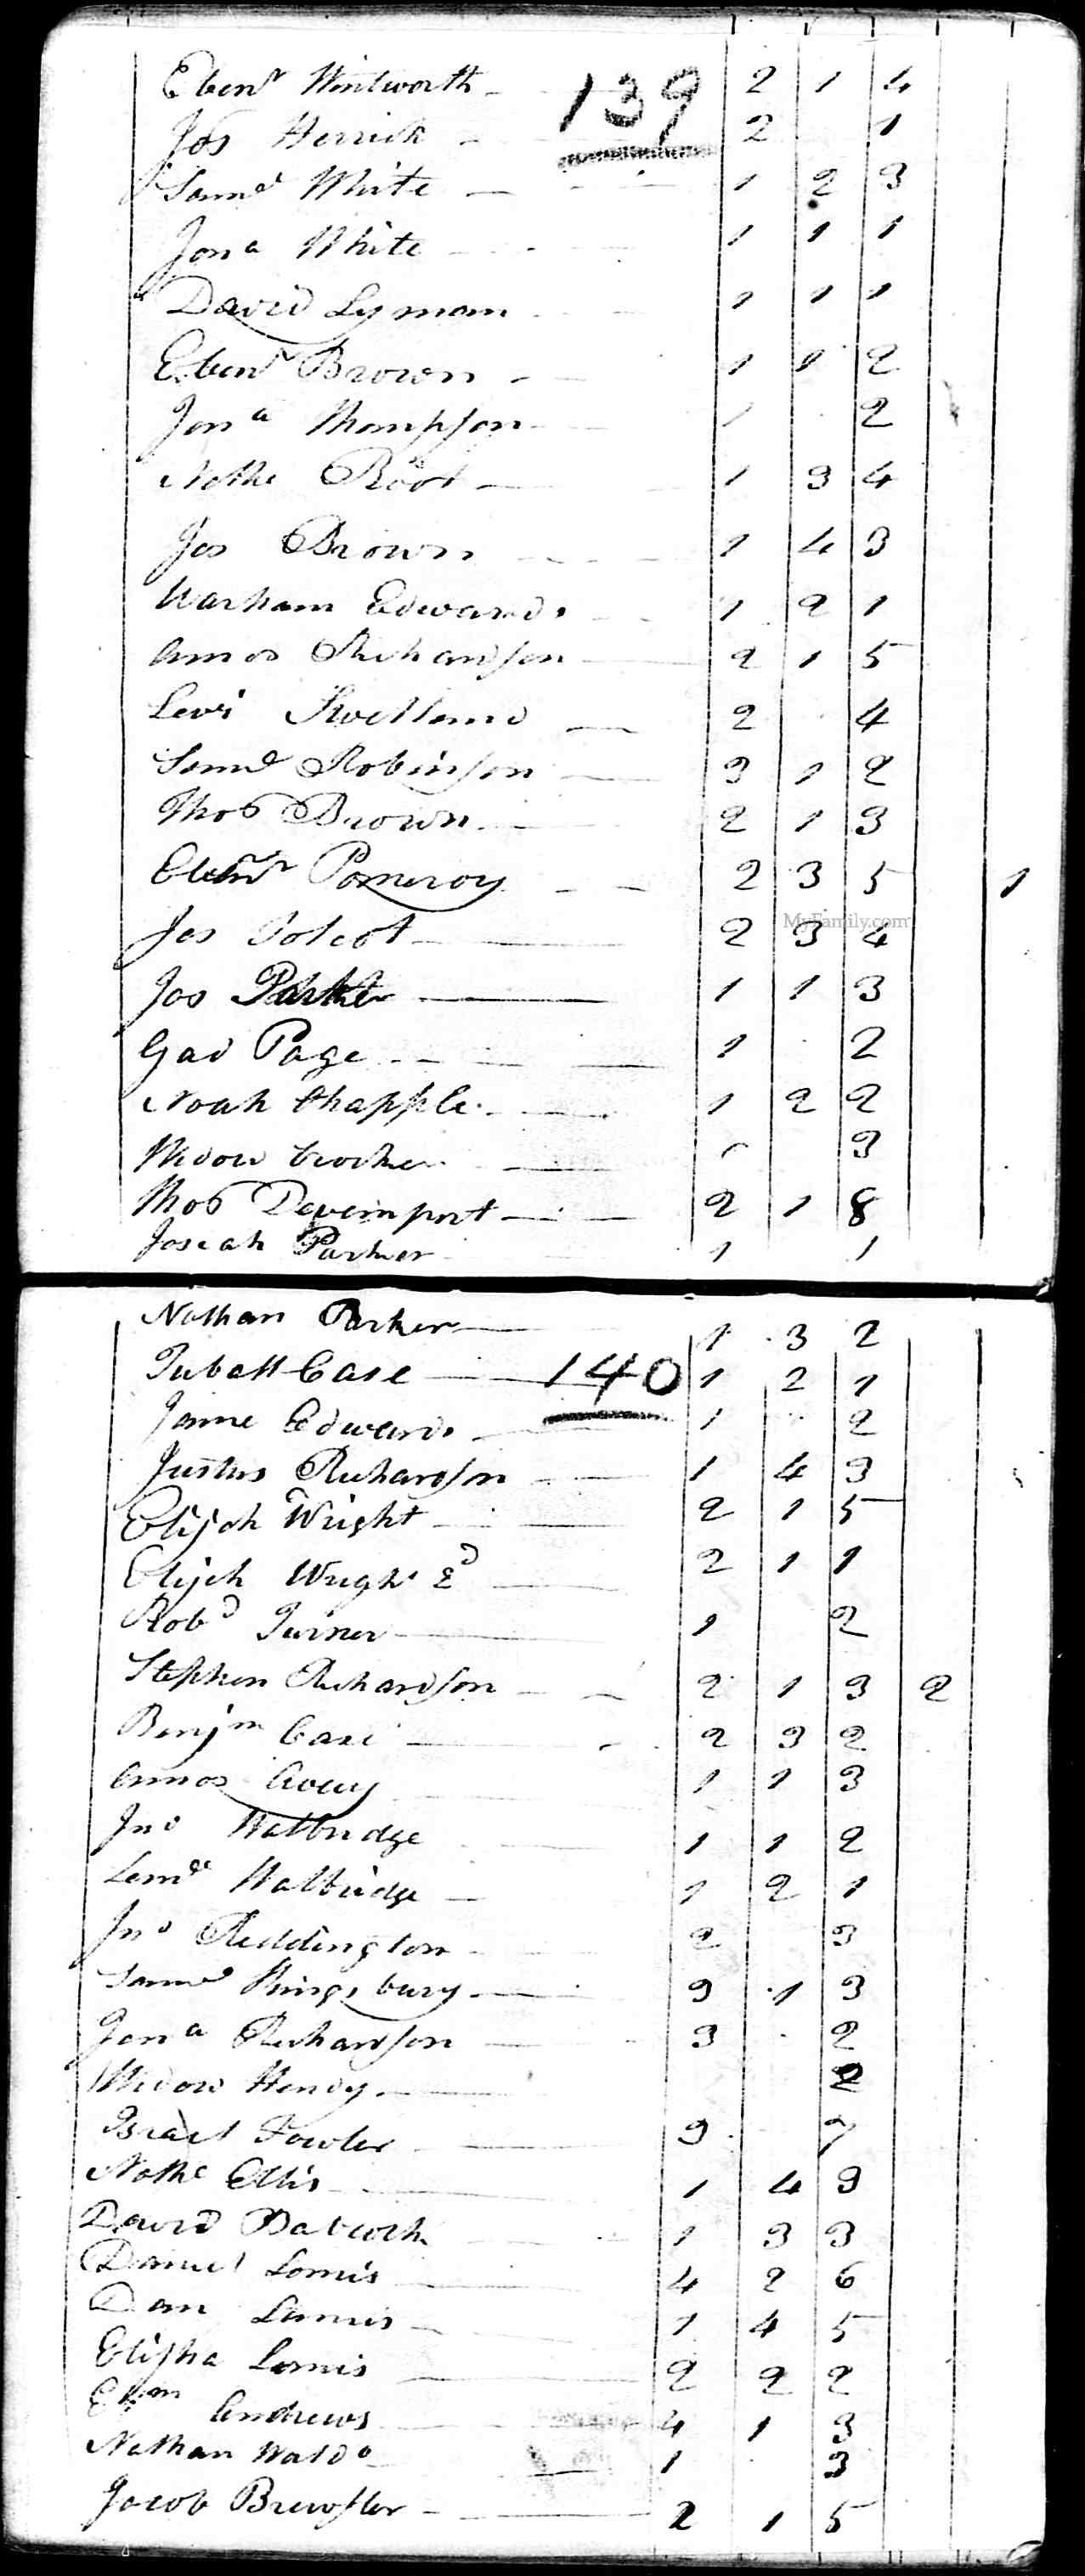 139
Ebenr Wintworth 2 1 4
Jos Herrick 2 1
Saml White 1 2 3
Jona White 1 1 1
David Lyman 1 1 1
Ebenr Brown 1 1 2
Jona Thompson 1 2
Nathl Root 1 3 4
Jos Brown 1 4 3
Warham Edwards 1 2 1
Amos Richardson 2 1 5
Levi Swetland 2 4
Saml Robinson 3 1 2
Thos Brown 2 1 3
Ebenr Pomeroy 2 3 5 1
MyFamily.com
Jos Tolcot 2 3 4
Jos Parker 1 1 3
Gad Page 1 2
Noah Chapple 1 2 2
Widow Crocker 3
Thos Devenport 2 1 8
Josiah Parker 1 1
Nathan Parker 1 3 2
140
Tuball Case 1 2 1
Edwards 1 2
Justus Richardson 1 4 3
Elijah Wright 2 1 5
Elijah Wright 2d 2 1 1
Robd Turner 1 2
Stephen Richardson 2 1 3 2
Benjm Case 2 3 2
Amos Avery 1 1 3
Jno Walbridge 1 1 2
Walbridge 1 2 1
Jno Reddington 2 3
Saml Kingsbury 3 1 3
Jona Richardson 3 2
Widow Hendy 2
Israel Fowler 3 7
Nathl Ellis 1 4 3
David Babcock 1 3 3
Daniel Lomis 4 2 6
Dan Lomis 1 4 5
Elisha Lomis 2 2 2
Andrews 4 1 3
Nathan Waldo 1 3
Jacob Brewster 2 1 5